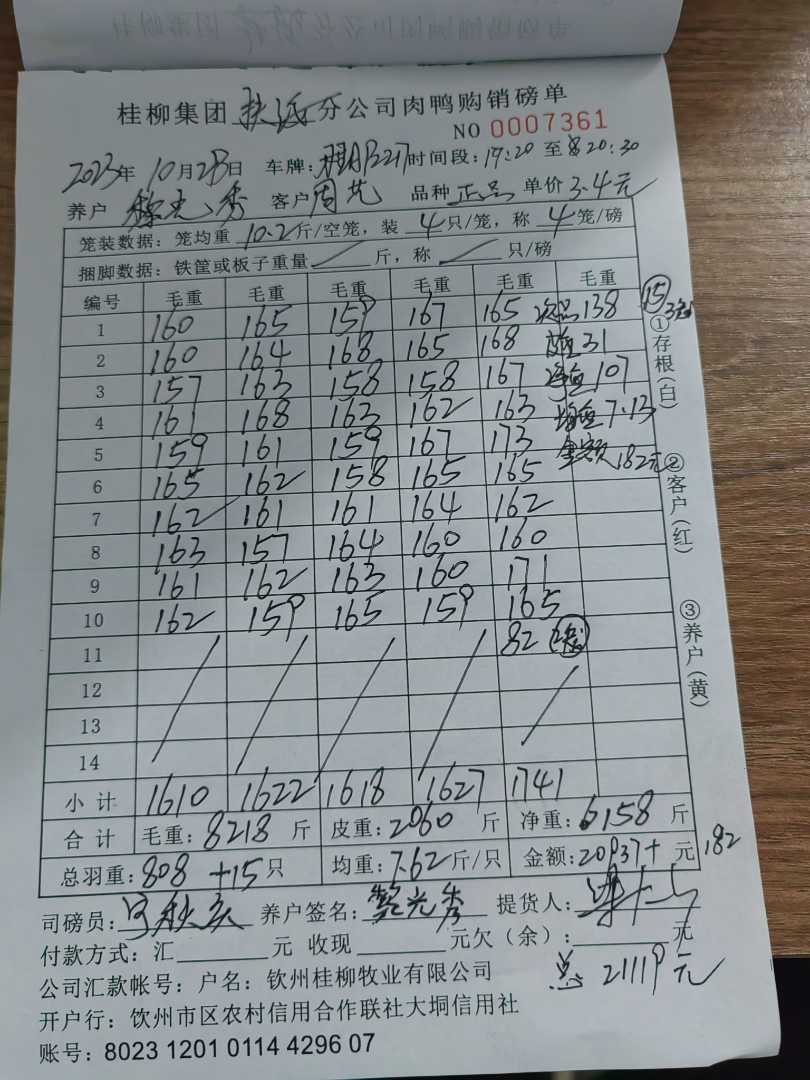 桂柳集团 分公司肉鸭购销磅单
NO 0007361
2023年10月28日 车牌: 时间段:19:20 至 20:30
养户 秀 客户 周 品种 正品 单价 3.4元
笼装数据:笼均重 10.2 斤/空笼,装 4 只/笼,称 4 笼/磅
捆脚数据:铁筐或板子重量 / 斤,称 / 只/磅
编号 毛重 毛重 毛重 毛重 毛重 毛重
1 160 165 159 167 165 次品138 ⑮
2 160 164 168 165 168 皮重31
3 157 163 158 158 167 净重107
4 161 168 163 162 163 均重7.13
5 159 161 159 167 173 金额182元
6 165 162 158 165 165
7 162 161 161 164 162
8 163 157 164 160 160
9 161 162 163 160 171
10 162 159 165 159 165
11 82
12
13
14
小计 1610 1622 1618 1627 1741
合计 毛重:8218 斤 皮重:2060 斤 净重:6158 斤
总羽重:808 +15 只 均重:7.62 斤/只 金额:20937+ 元 182
司磅员: 养户签名: 光秀 提货人:
付款方式:汇 元 收现 元欠(余): 元
总 21119元
公司汇款帐号:户名:钦州桂柳牧业有限公司
开户行:钦州市区农村信用合作联社大垌信用社
账号:8023 1201 0114 4296 07
①存根(白)
②客户(红)
③养户(黄)